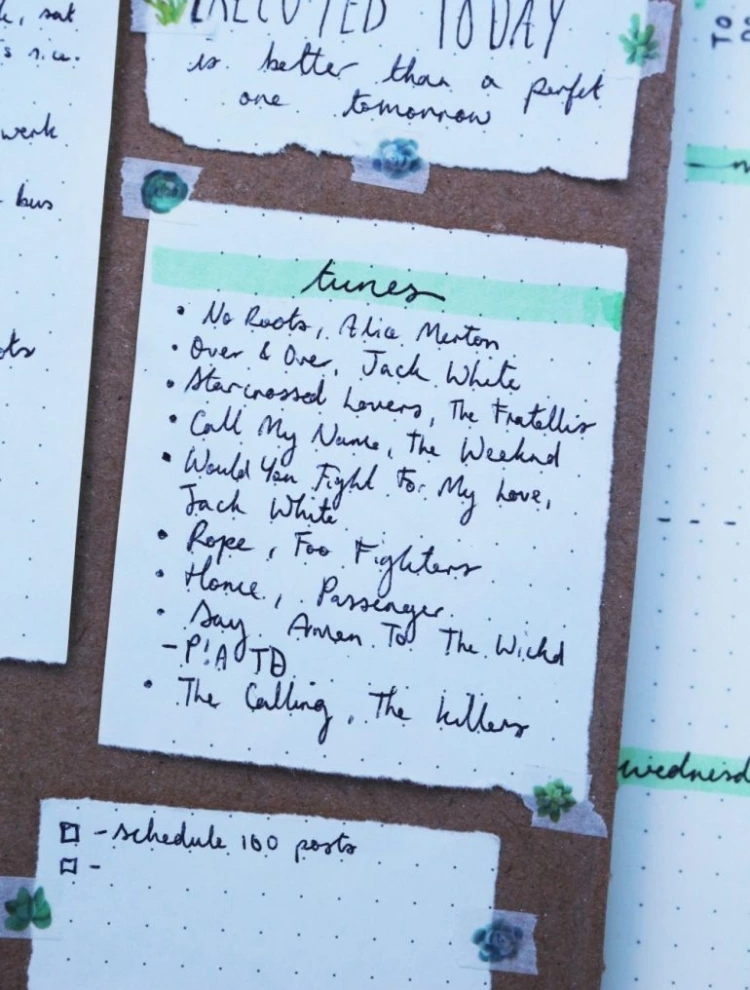 EXECUTED TODAY
is better than a perfet
one tomorrow
tunes
• No Roots, Alice Merton
• Over & Over, Jack White
• Starcrossed Lovers, The Fratellis
• Call My Name, The Weeknd
• Would You Fight For My Love,
Jack White
• Rope, Foo Fighters
• Home, Passenger
• Say Amen To The Wickd
- P!ATD
• The Calling, The Killers
- schedule 160 posts
-
k, sat
's nice.
werk
bus
ots
TO
wednesd